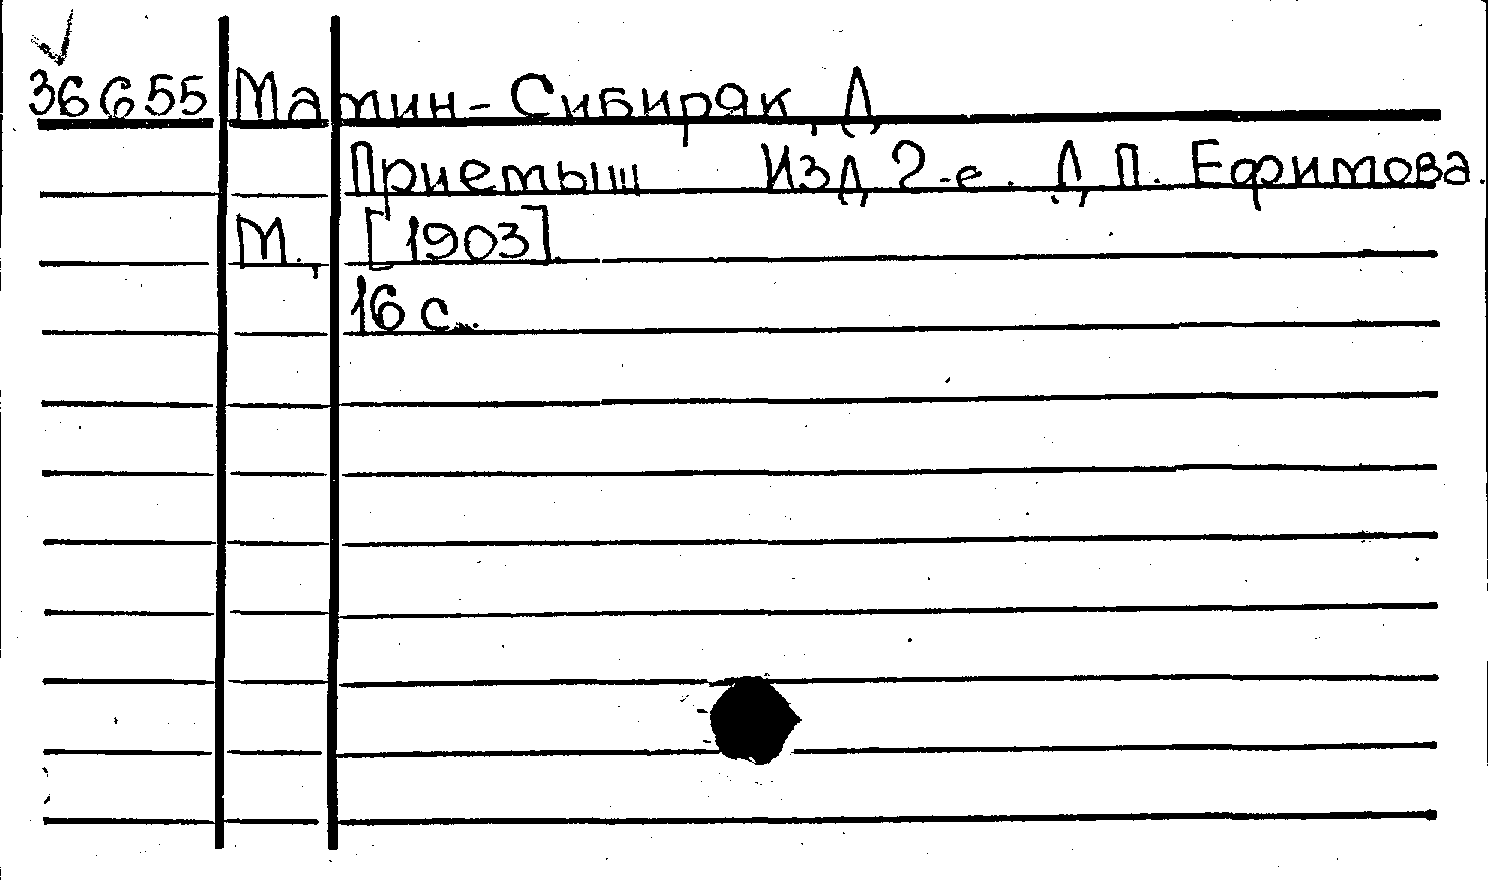 36655 Мамин-Сибиряк, Д
Приемыш Изд 2-е. Д. П. Ефимова.
М., [1903].
16 с.